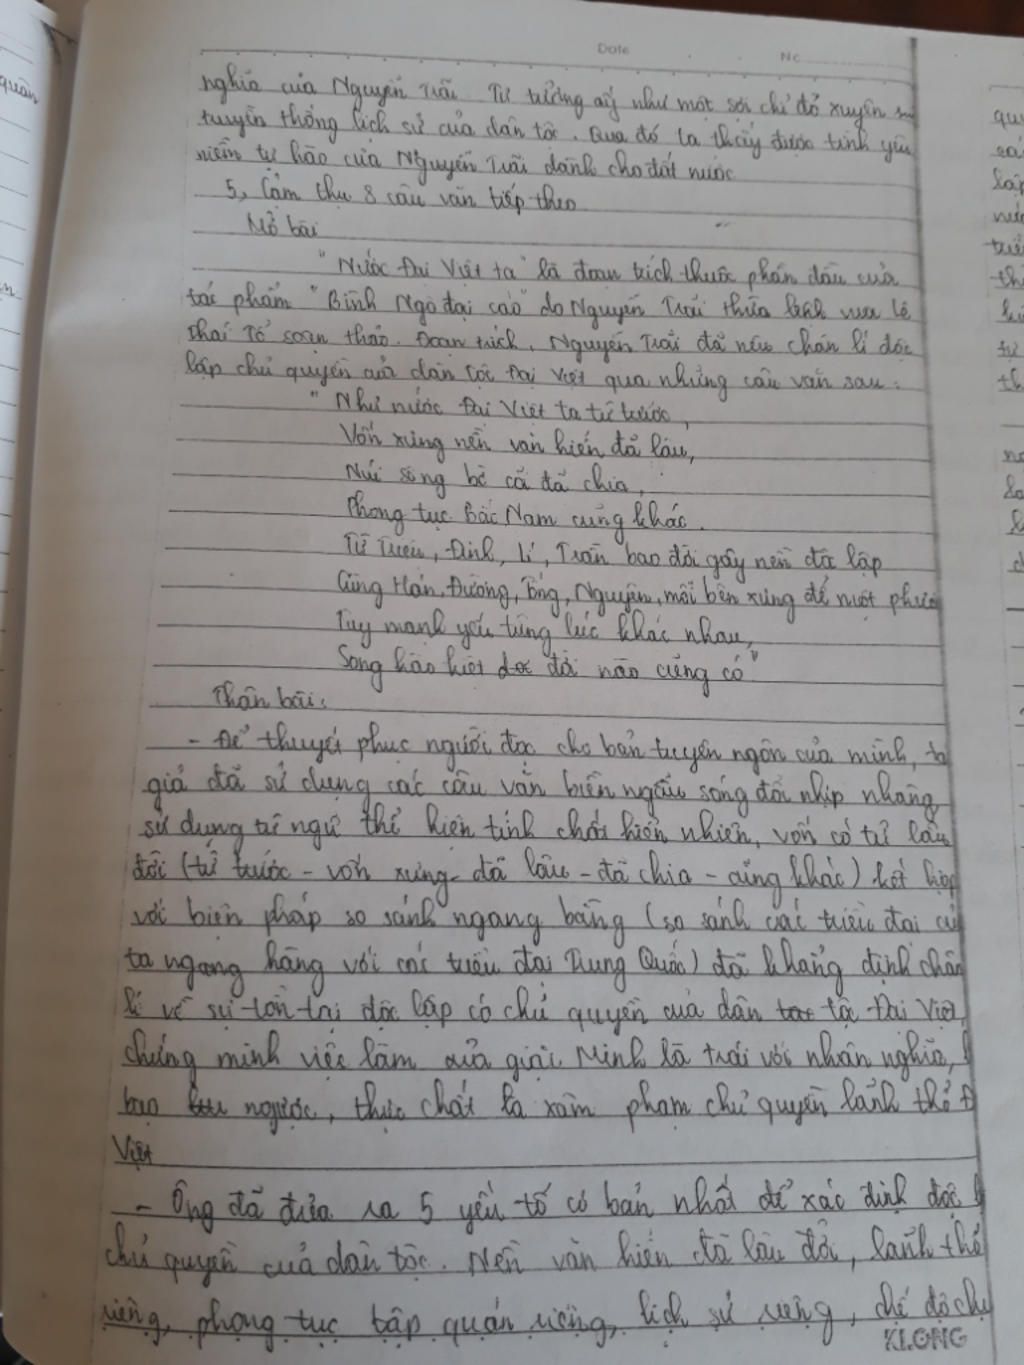 Date No
nghĩa của Nguyễn Trãi. Tư tưởng ấy như một sợi chỉ đỏ xuyên
truyền thống lịch sử của dân tộc. Qua đó ta thấy được tình yêu
niềm tự hào của Nguyễn Trãi dành cho đất nước
5, Cảm thụ 8 câu văn tiếp theo
Mở bài
"Nước Đại Việt ta" là đoạn trích thuộc phần đầu của
tác phẩm "Bình Ngô đại cáo" do Nguyễn Trãi thừa lệnh vua Lê
Thái Tổ soạn thảo. Đoạn trích, Nguyễn Trãi đã nêu chân lí độc
lập chủ quyền của dân tộc Đại Việt qua những câu văn sau:
"Như nước Đại Việt ta từ trước,
Vốn xưng nền văn hiến đã lâu,
Núi sông bờ cõi đã chia,
Phong tục Bắc Nam cũng khác.
Từ Triệu, Đinh, Lí, Trần bao đời gây nền độc lập
Cùng Hán, Đường, Tống, Nguyên, mỗi bên xưng đế một phương
Tuy mạnh yếu từng lúc khác nhau,
Song hào kiệt đời nào cũng có"
Thân bài:
- Để thuyết phục người đọc cho bản tuyên ngôn của mình, tá
giả đã sử dụng các câu văn biền ngẫu sóng đôi nhịp nhàng
sử dụng từ ngữ thể hiện tính chất hiển nhiên, vốn có từ lâu
đời (từ trước - vốn xưng - đã lâu - đã chia - cũng khác) kết hợp
với biện pháp so sánh ngang bằng (so sánh các triều đại củ
ta ngang hàng với các triều đại Trung Quốc) đã khẳng định chân
lí về sự tồn tại độc lập có chủ quyền của dân tộc Đại Việt,
chứng minh việc làm của giặc Minh là trái với nhân nghĩa,
bạo ngược, thực chất là xâm phạm chủ quyền lãnh thổ Đ
Việt
- Ông đã đưa ra 5 yếu tố cơ bản nhất để xác định độc l
chủ quyền của dân tộc. Nền văn hiến đã lâu đời, lãnh thổ
riêng, phong tục tập quán riêng, lịch sử riêng, chế độ chủ
KLONG